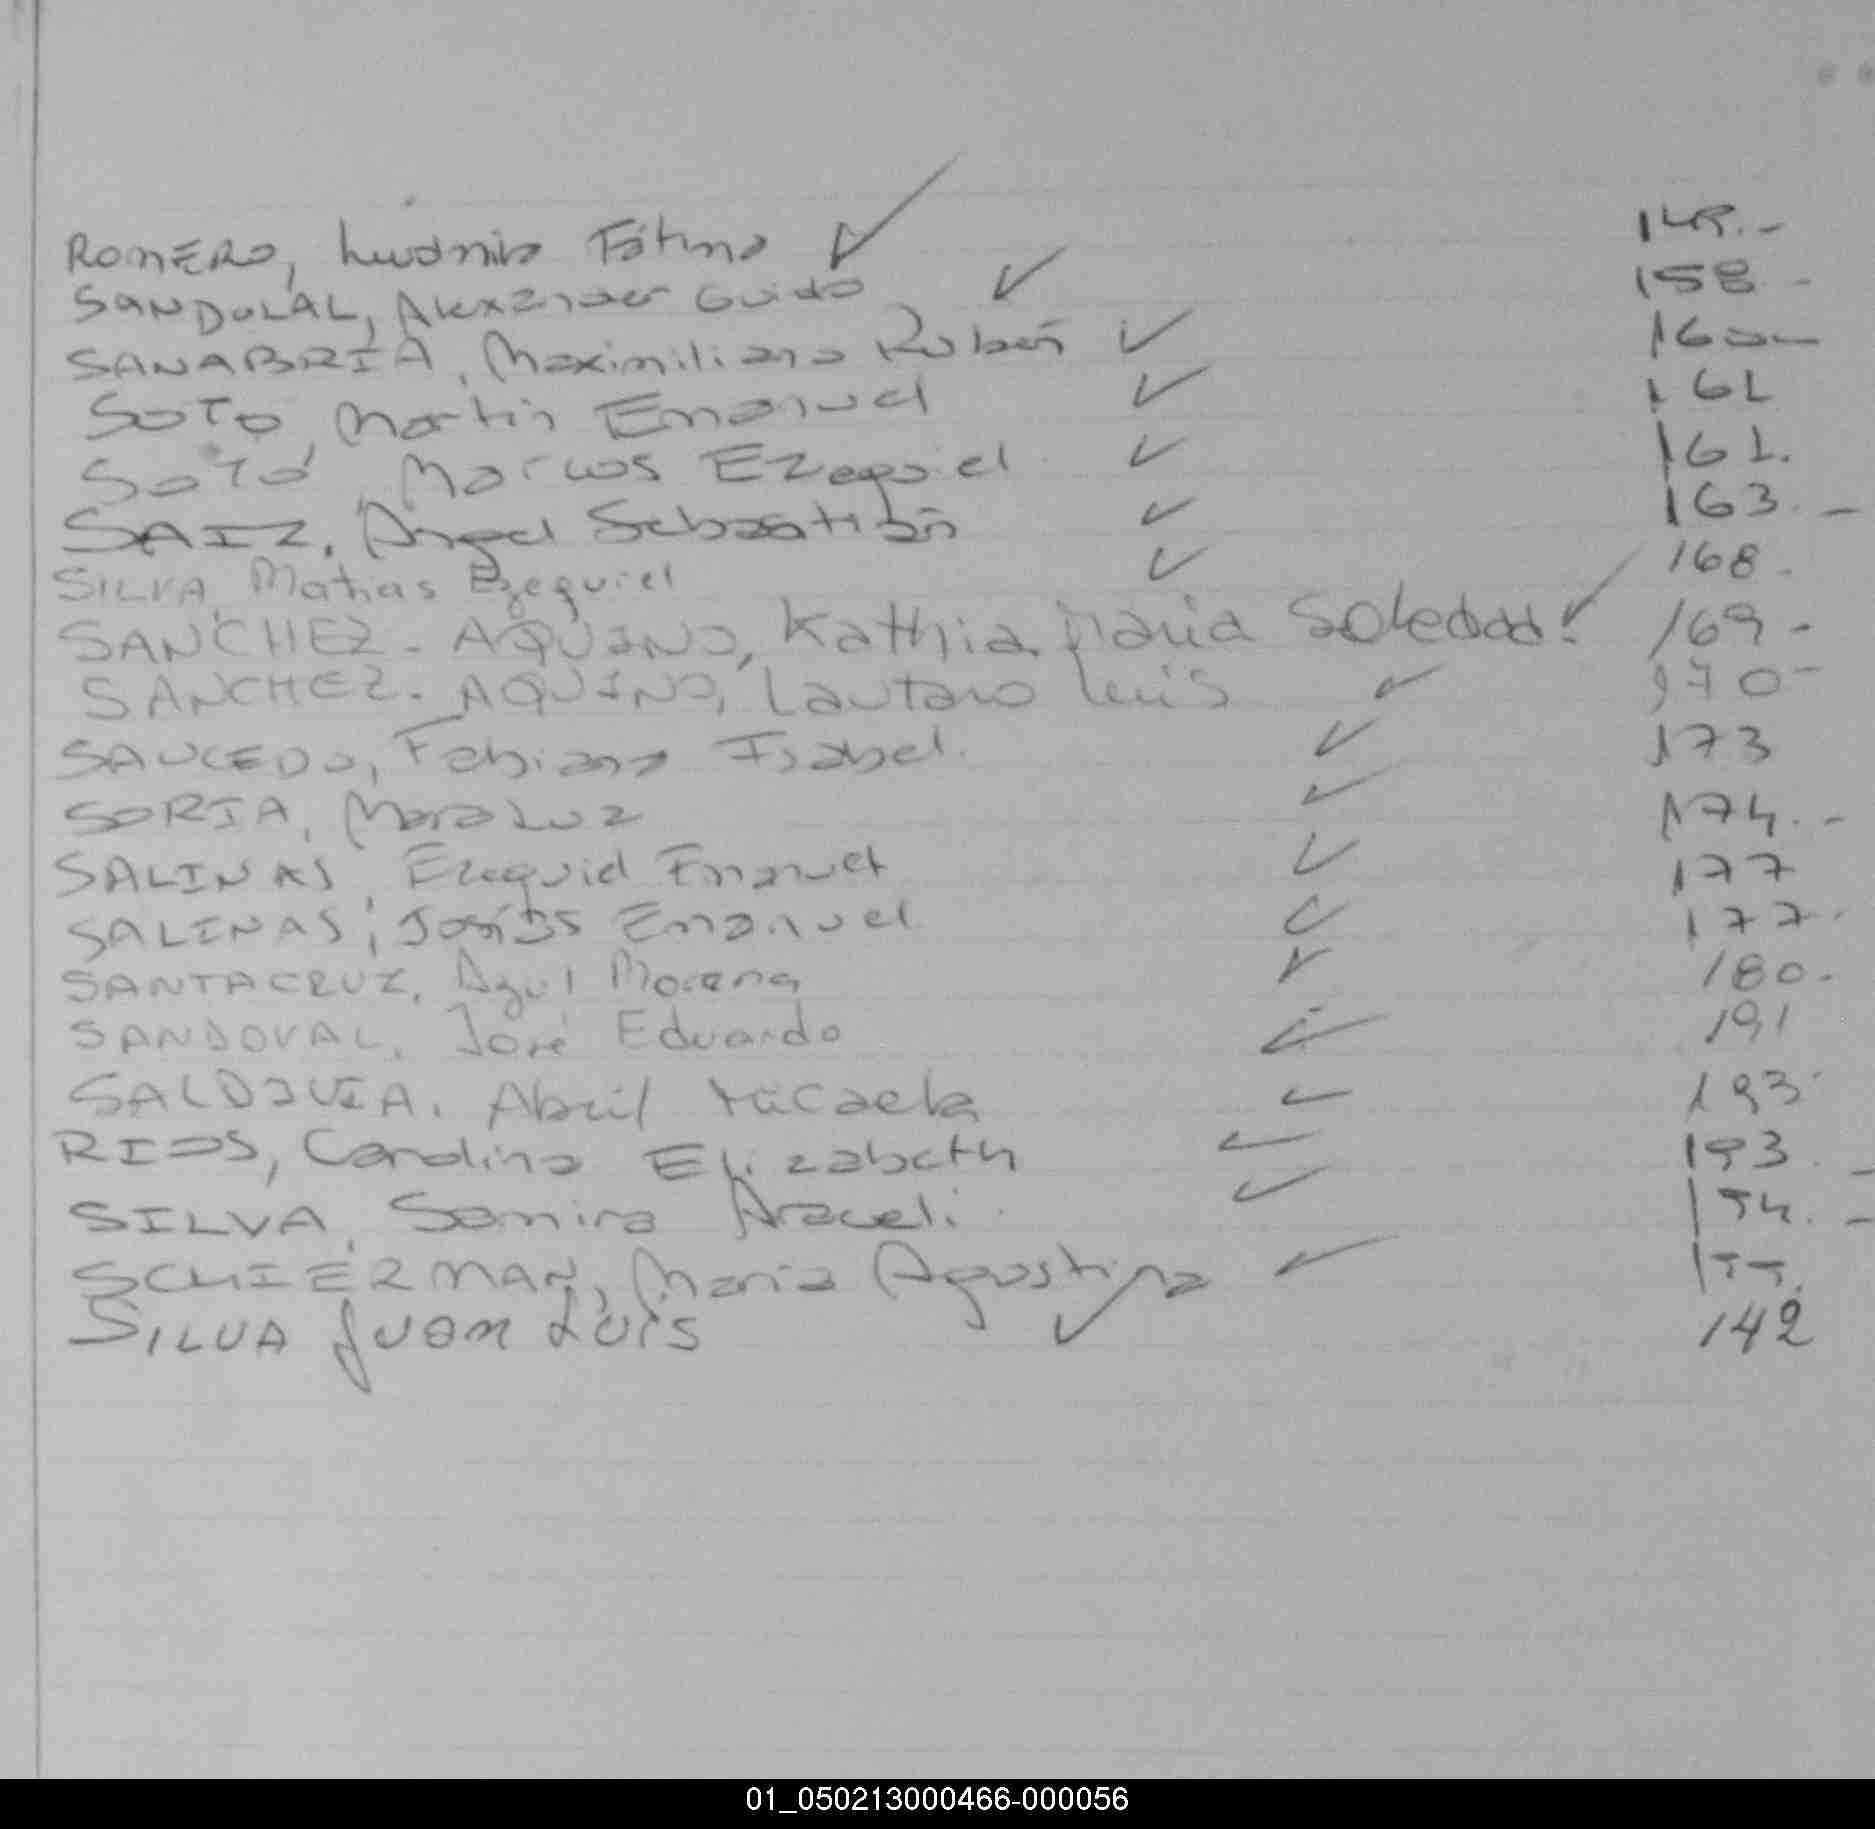 ROMERO, Ludmila Fátima ✓ 149.-
SANDOVAL, Alexander Guido ✓ 158.-
SANABRIA, Maximiliano Rubén ✓ 160.-
SOTO, Martin Emanuel ✓ 161
SOTO, Marcos Ezequiel ✓ 161.
SAIZ, Angel Sebastián ✓ 163.-
SILVA, Matias Ezequiel ✓ 168.
SANCHEZ-AQUINO, Kathia Maria Soledad. ✓ 169-
SANCHEZ-AQUINO, Lautaro Luis ✓ 170-
SAUCEDO, Fabiana Isabel. ✓ 173
SORIA, Mora Luz ✓ 174.-
SALINAS, Ezequiel Emanuel ✓ 177
SALINAS, Josías Emanuel ✓ 177.
SANTACRUZ, Azul Morena ✓ 180.
SANDOVAL, José Eduardo ✓ 191
SALDIVIA, Abril Micaela ✓ 193.
RIOS, Carolina Elizabeth ✓ 193.-
SILVA, Samira Araceli. ✓ 194.-
SCHIERMAN, Maria Agostina ✓
SILVA Juan Luis ✓ 142
01_050213000466-000056